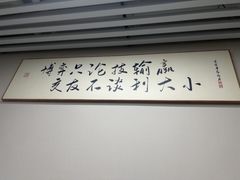 博弈只论技输赢
交友不谈利大小